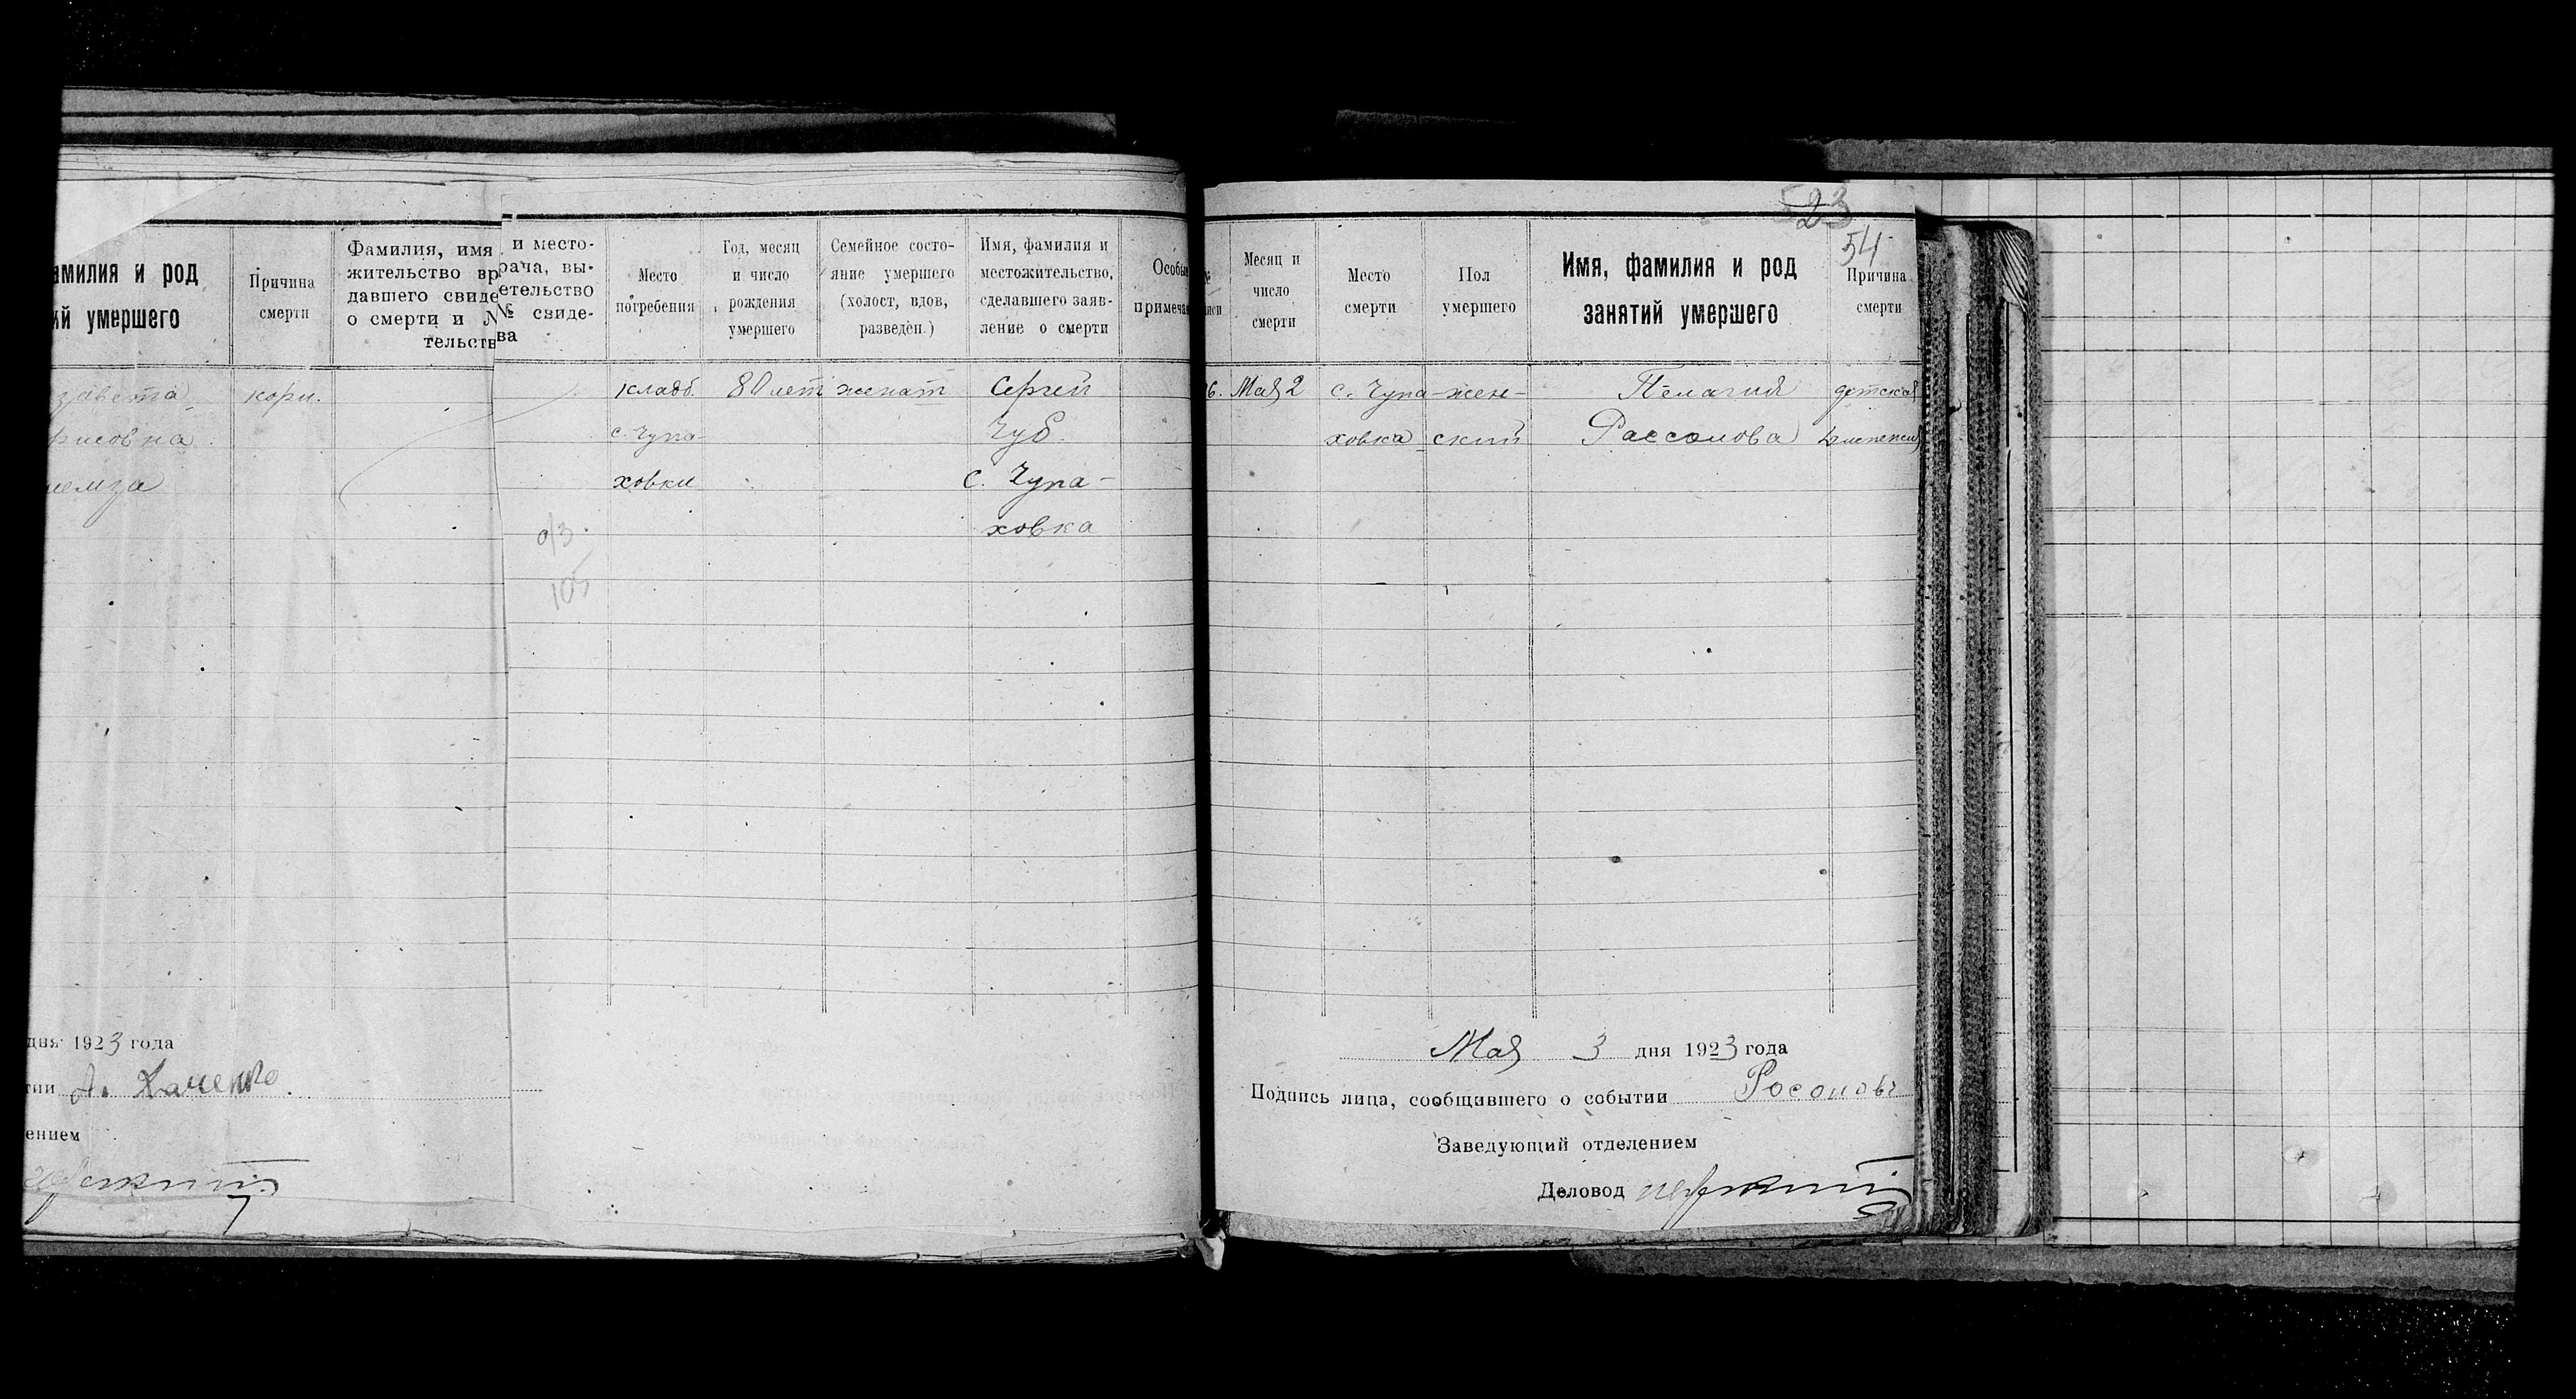 амилия и род
ий умершего
Причина
смерти
Фамилия, имя
жительство вр
давшего свиде
о смерти и №
тельств
завета
рисовна
кори.
дня 1923 года
тии А.
ением
и место-
рача, вы-
етельство
№ свиде-
ва
Место
погребения
Год, месяц
и число
рождения
умершего
Семейное состо-
яние умершего
(холост, вдов,
разведён.)
Имя, фамилия и
местожительство,
сделавшего заяв-
ление о смерти
Особы
примеча
кладб. 80 лет женат Сергей
с. Чупа- Чуб.
ховки с. Чупа-
ховка
105
523
54
№
Месяц и
число
смерти
Место
смерти
Пол
умершего
Имя, фамилия и род
занятий умершего
Причина
смерти
6. Мая 2 с. Чупа- жен- Пелагия детская
ховка ский Рассолова диспепсия
Мая 3 дня 1923 года
Подпись лица, сообщившего о событии
Заведующий отделением
Деловод